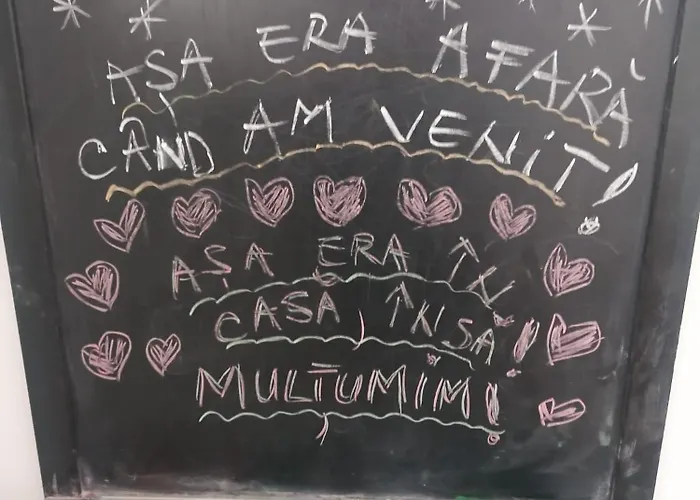 AȘA ERA AFARĂ
CÂND AM VENIT!
AȘA ERA ÎN
CASĂ ÎNSĂ!
MULȚUMIM!